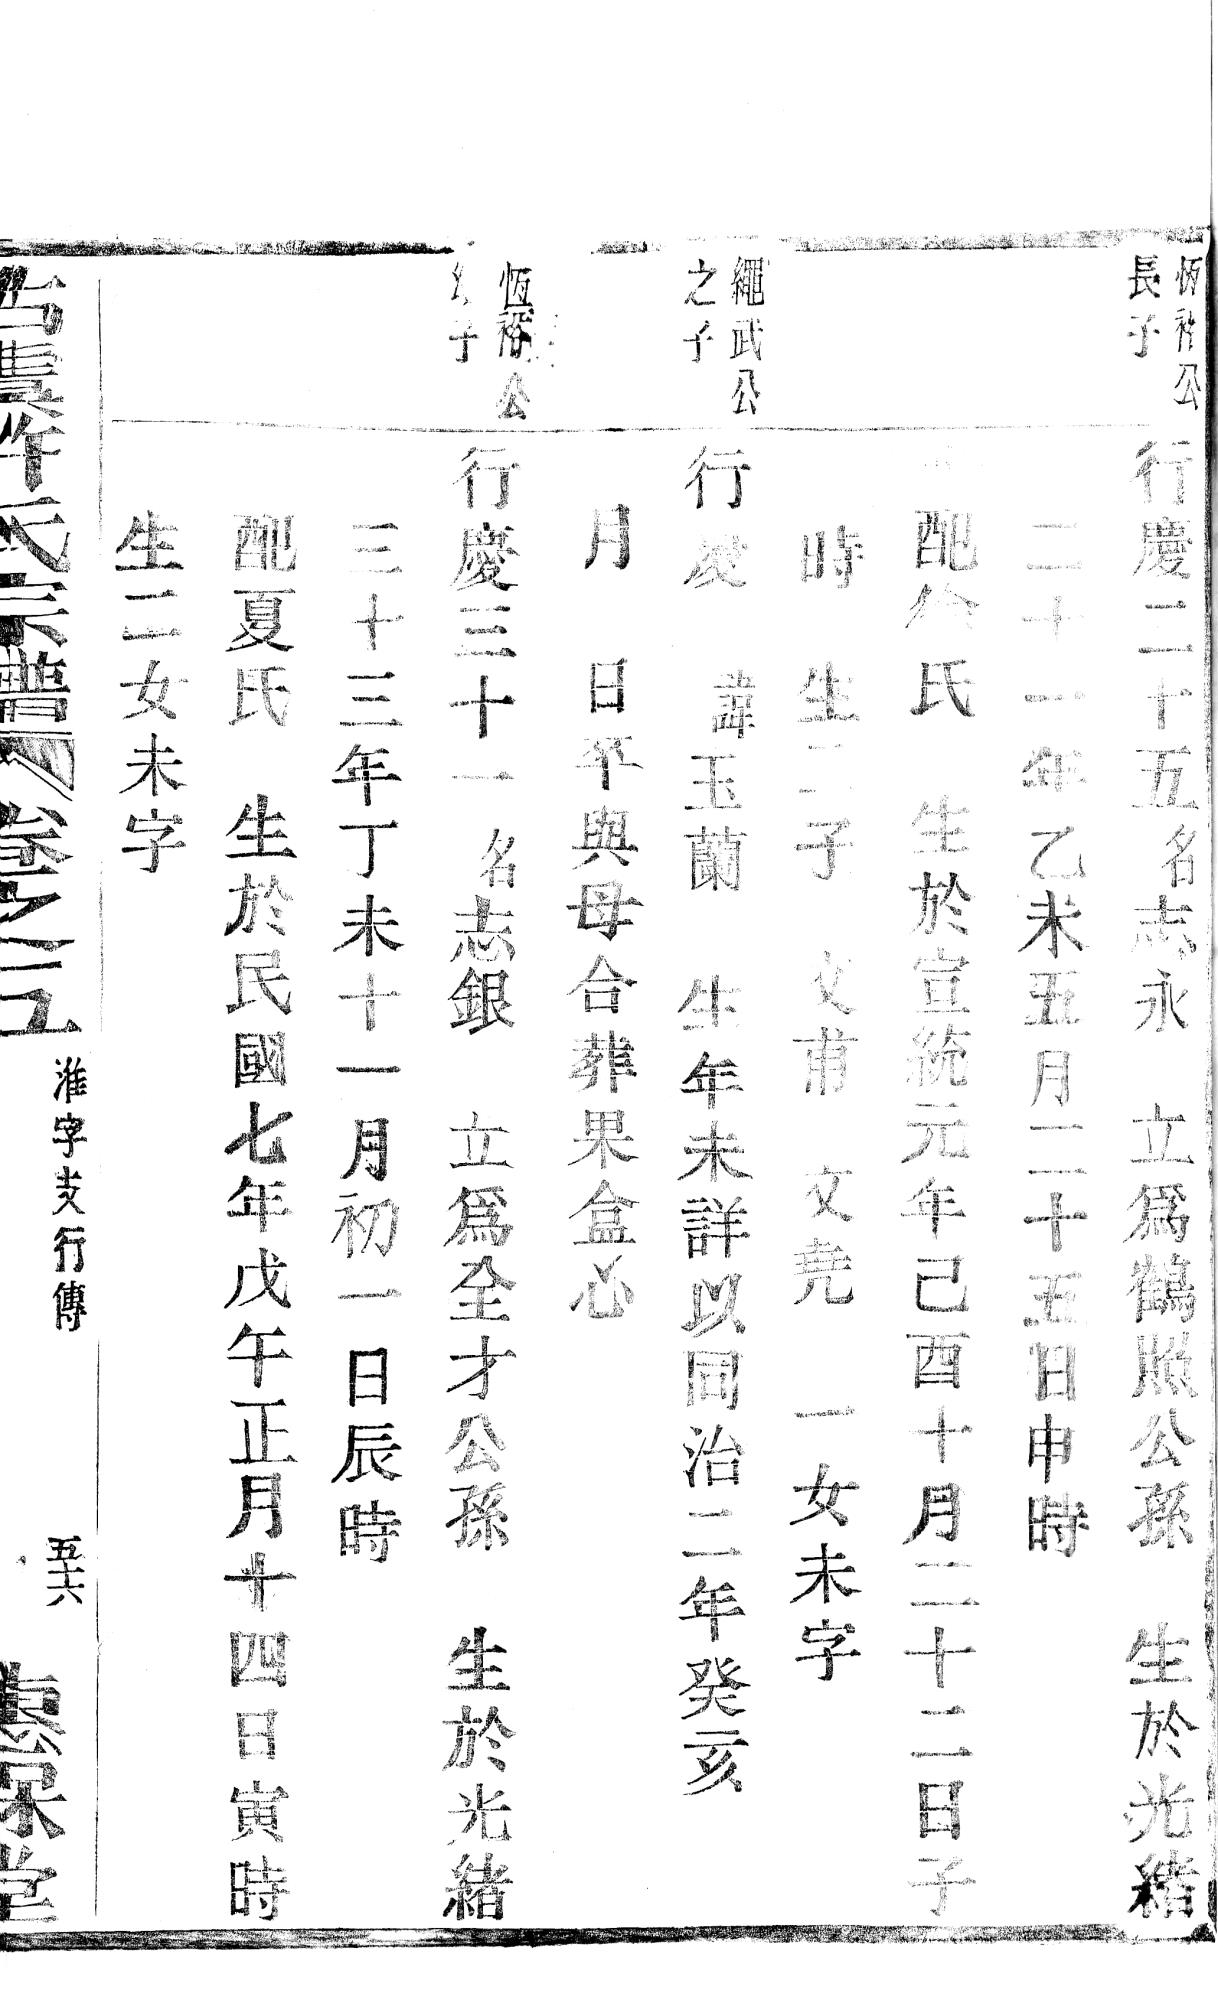 恆裕公
長子
行慶二十五名志永 立爲鶴照公孫 生於光緒
二十一年乙未五月二十五日申時
配徐氏 生於宣統元年己酉十月二十二日子
時 生二子 文甫 文堯 一女未字
繩武公
之子
行慶 諱玉蘭 生年未詳以同治二年癸亥
月 日卒與母合葬果盒心
恆裕公
子
行慶三十一名志銀 立爲全才公孫 生於光緒
三十三年丁未十一月初一日辰時
配夏氏 生於民國七年戊午正月十四日寅時
生二女未字
古虞許氏宗譜 卷之五
淮字支行傳
五十六
堂